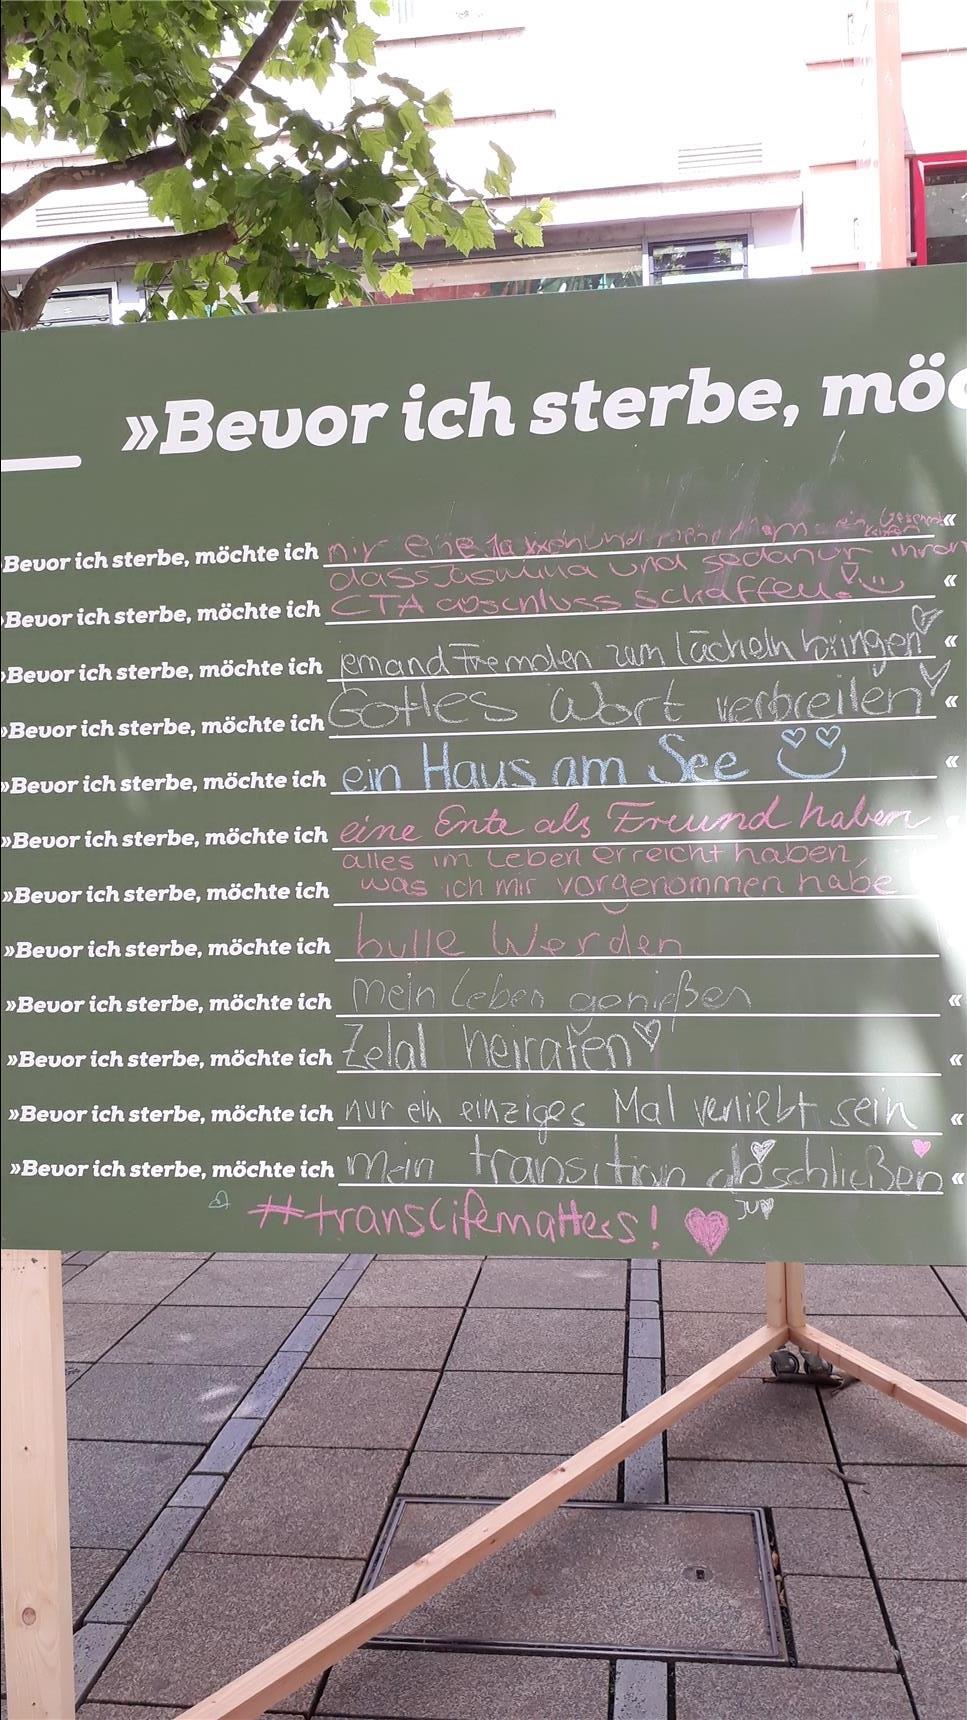 »Bevor ich sterbe, möc
Bevor ich sterbe, möchte ich mir eine «
dass Jasmina und sedanur ihren
Bevor ich sterbe, möchte ich CTA abschluss schaffen! «
»Bevor ich sterbe, möchte ich jemand Fremden zum lächeln bringen «
»Bevor ich sterbe, möchte ich Gottes Wort verbreiten «
»Bevor ich sterbe, möchte ich ein Haus am See «
»Bevor ich sterbe, möchte ich eine Ente als Freund haben
alles im Leben erreicht haben,
»Bevor ich sterbe, möchte ich was ich mir vorgenommen habe
»Bevor ich sterbe, möchte ich bulle Werden
»Bevor ich sterbe, möchte ich mein Leben genießen «
»Bevor ich sterbe, möchte ich Zelal heiraten «
»Bevor ich sterbe, möchte ich nur ein einziges Mal verliebt sein «
»Bevor ich sterbe, möchte ich mein transition abschließen «
#translifematters!